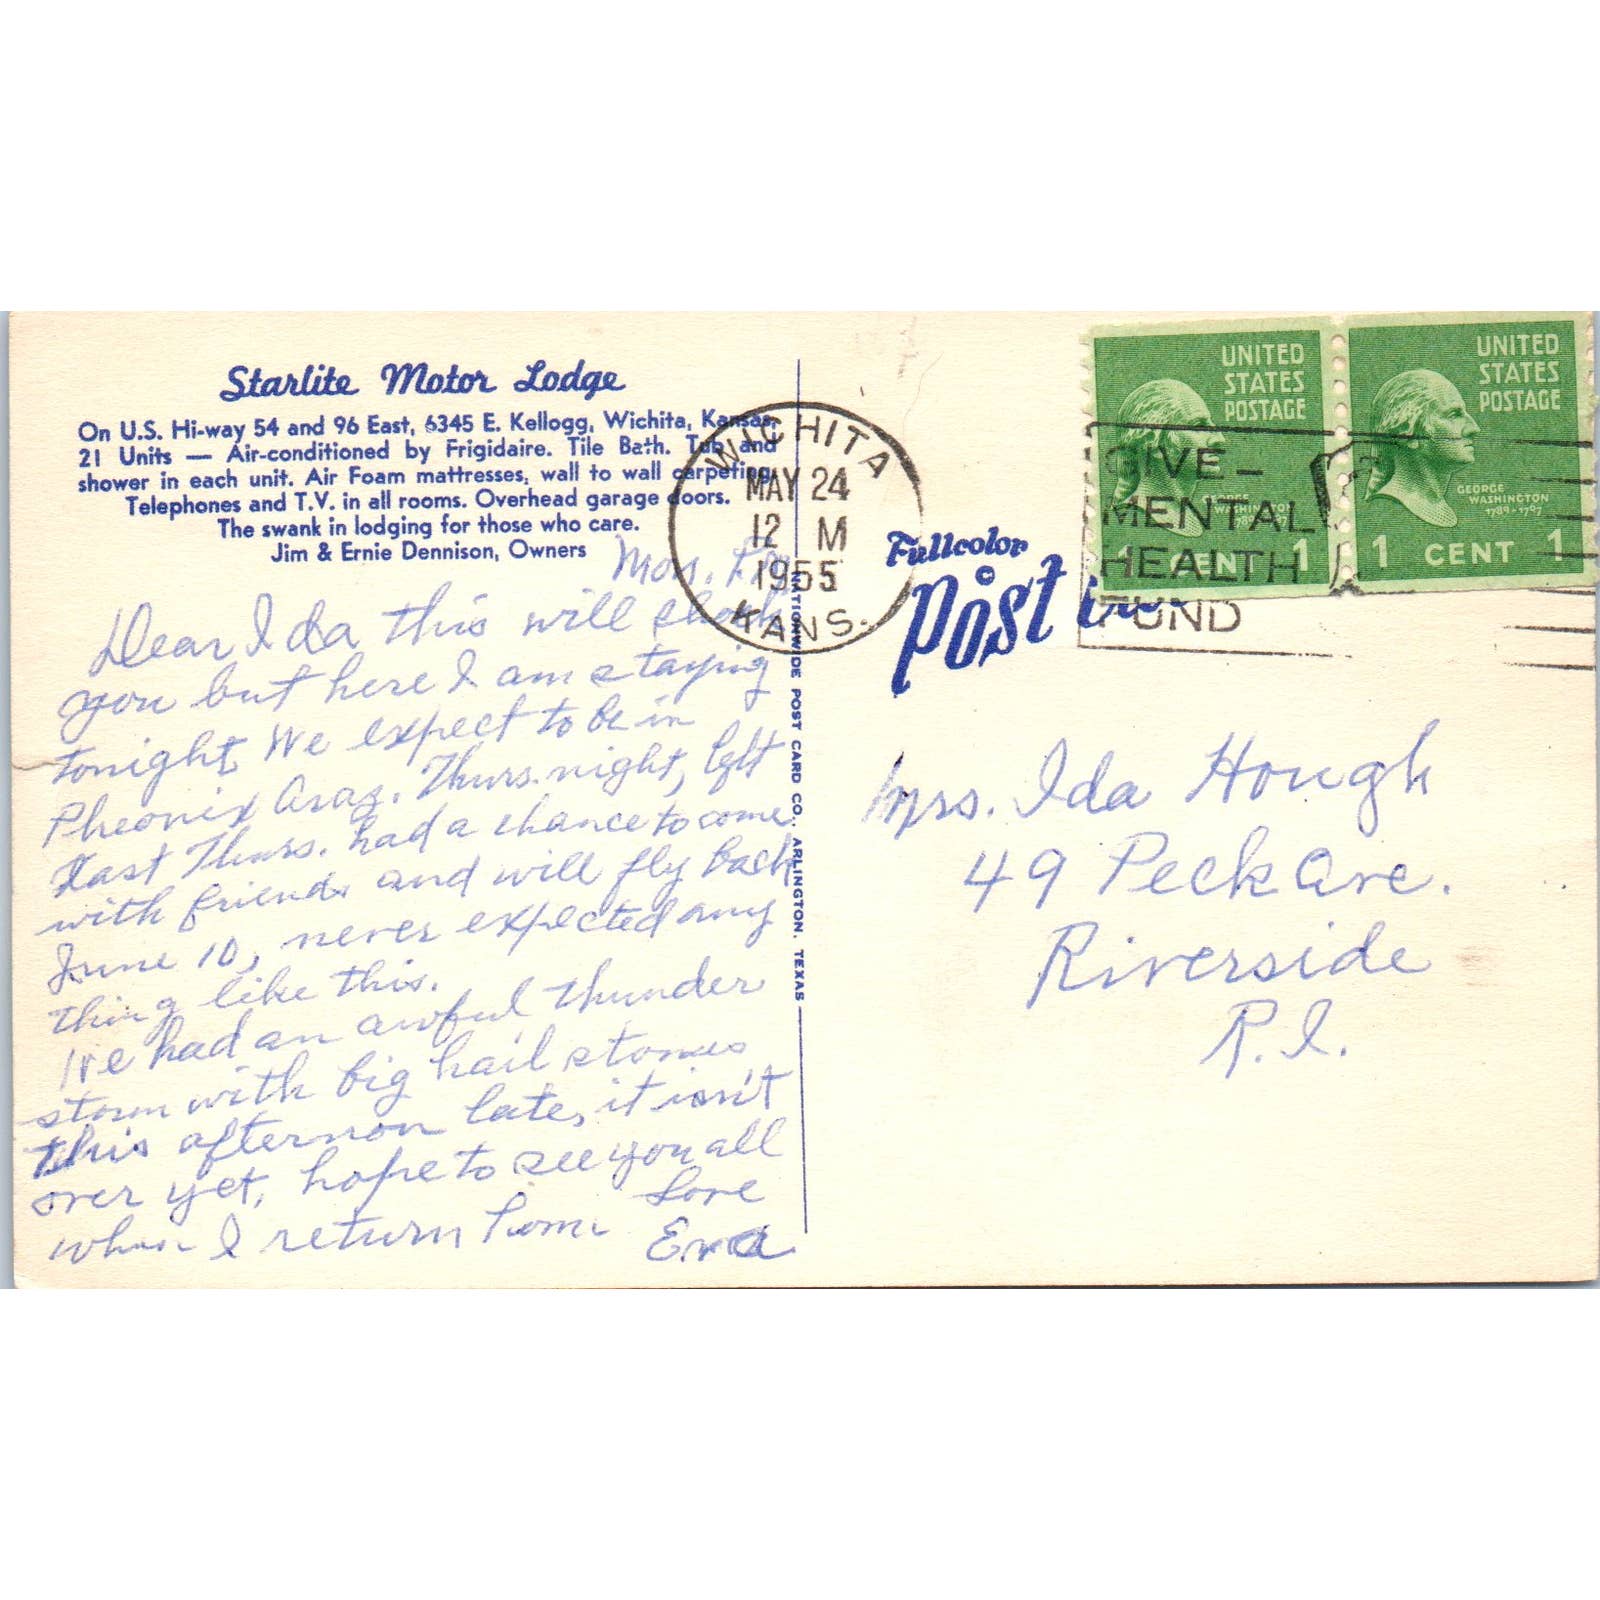 Starlite Motor Lodge
On U.S. Hi-way 54 and 96 East, 6345 E. Kellogg, Wichita, Kansas.
21 Units — Air-conditioned by Frigidaire. Tile Bath. Tub and
shower in each unit. Air Foam mattresses, wall to wall carpeting,
Telephones and T.V. in all rooms. Overhead garage doors.
The swank in lodging for those who care.
Jim & Ernie Dennison, Owners
Mon.
Dear Ida this will shock
you but here I am staying
tonight, We expect to be in
Pheonix Thurs. night, left
Last Thurs. had a chance to come
with friends and will fly back
June 10, never expected any
thing like this.
We had an awful thunder
storm with big hail stones
this afternoon late, it isn't
over yet, hope to see you all
when I return home
Love
Eva
NATIONWIDE POST CARD CO., ARLINGTON, TEXAS
WICHITA
MAY 24
12 M
1955
KANS.
Fullcolor
Post
GIVE –
MENTAL
HEALTH
FUND
UNITED
STATES
POSTAGE
GEORGE
WASHINGTON
1 CENT 1
UNITED
STATES
POSTAGE
GEORGE
WASHINGTON
1789-1797
1 CENT 1
Mrs. Ida Hough
49 Peck Ave.
Riverside
R.I.